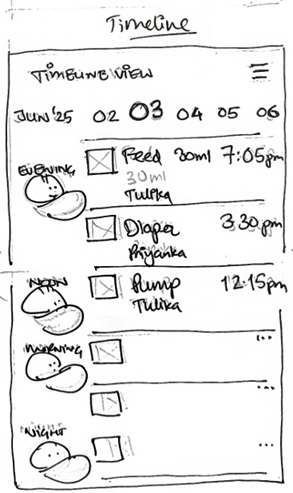 Timeline
TIMELINE VIEW
JUN'25 02 03 04 05 06
EVENING
Feed 30ml 7:05pm
30ml
Tulika
Diaper 3.30pm
Priyanka
NOON
Pump 12.15pm
Tulika
MORNING
...
...
NIGHT
...